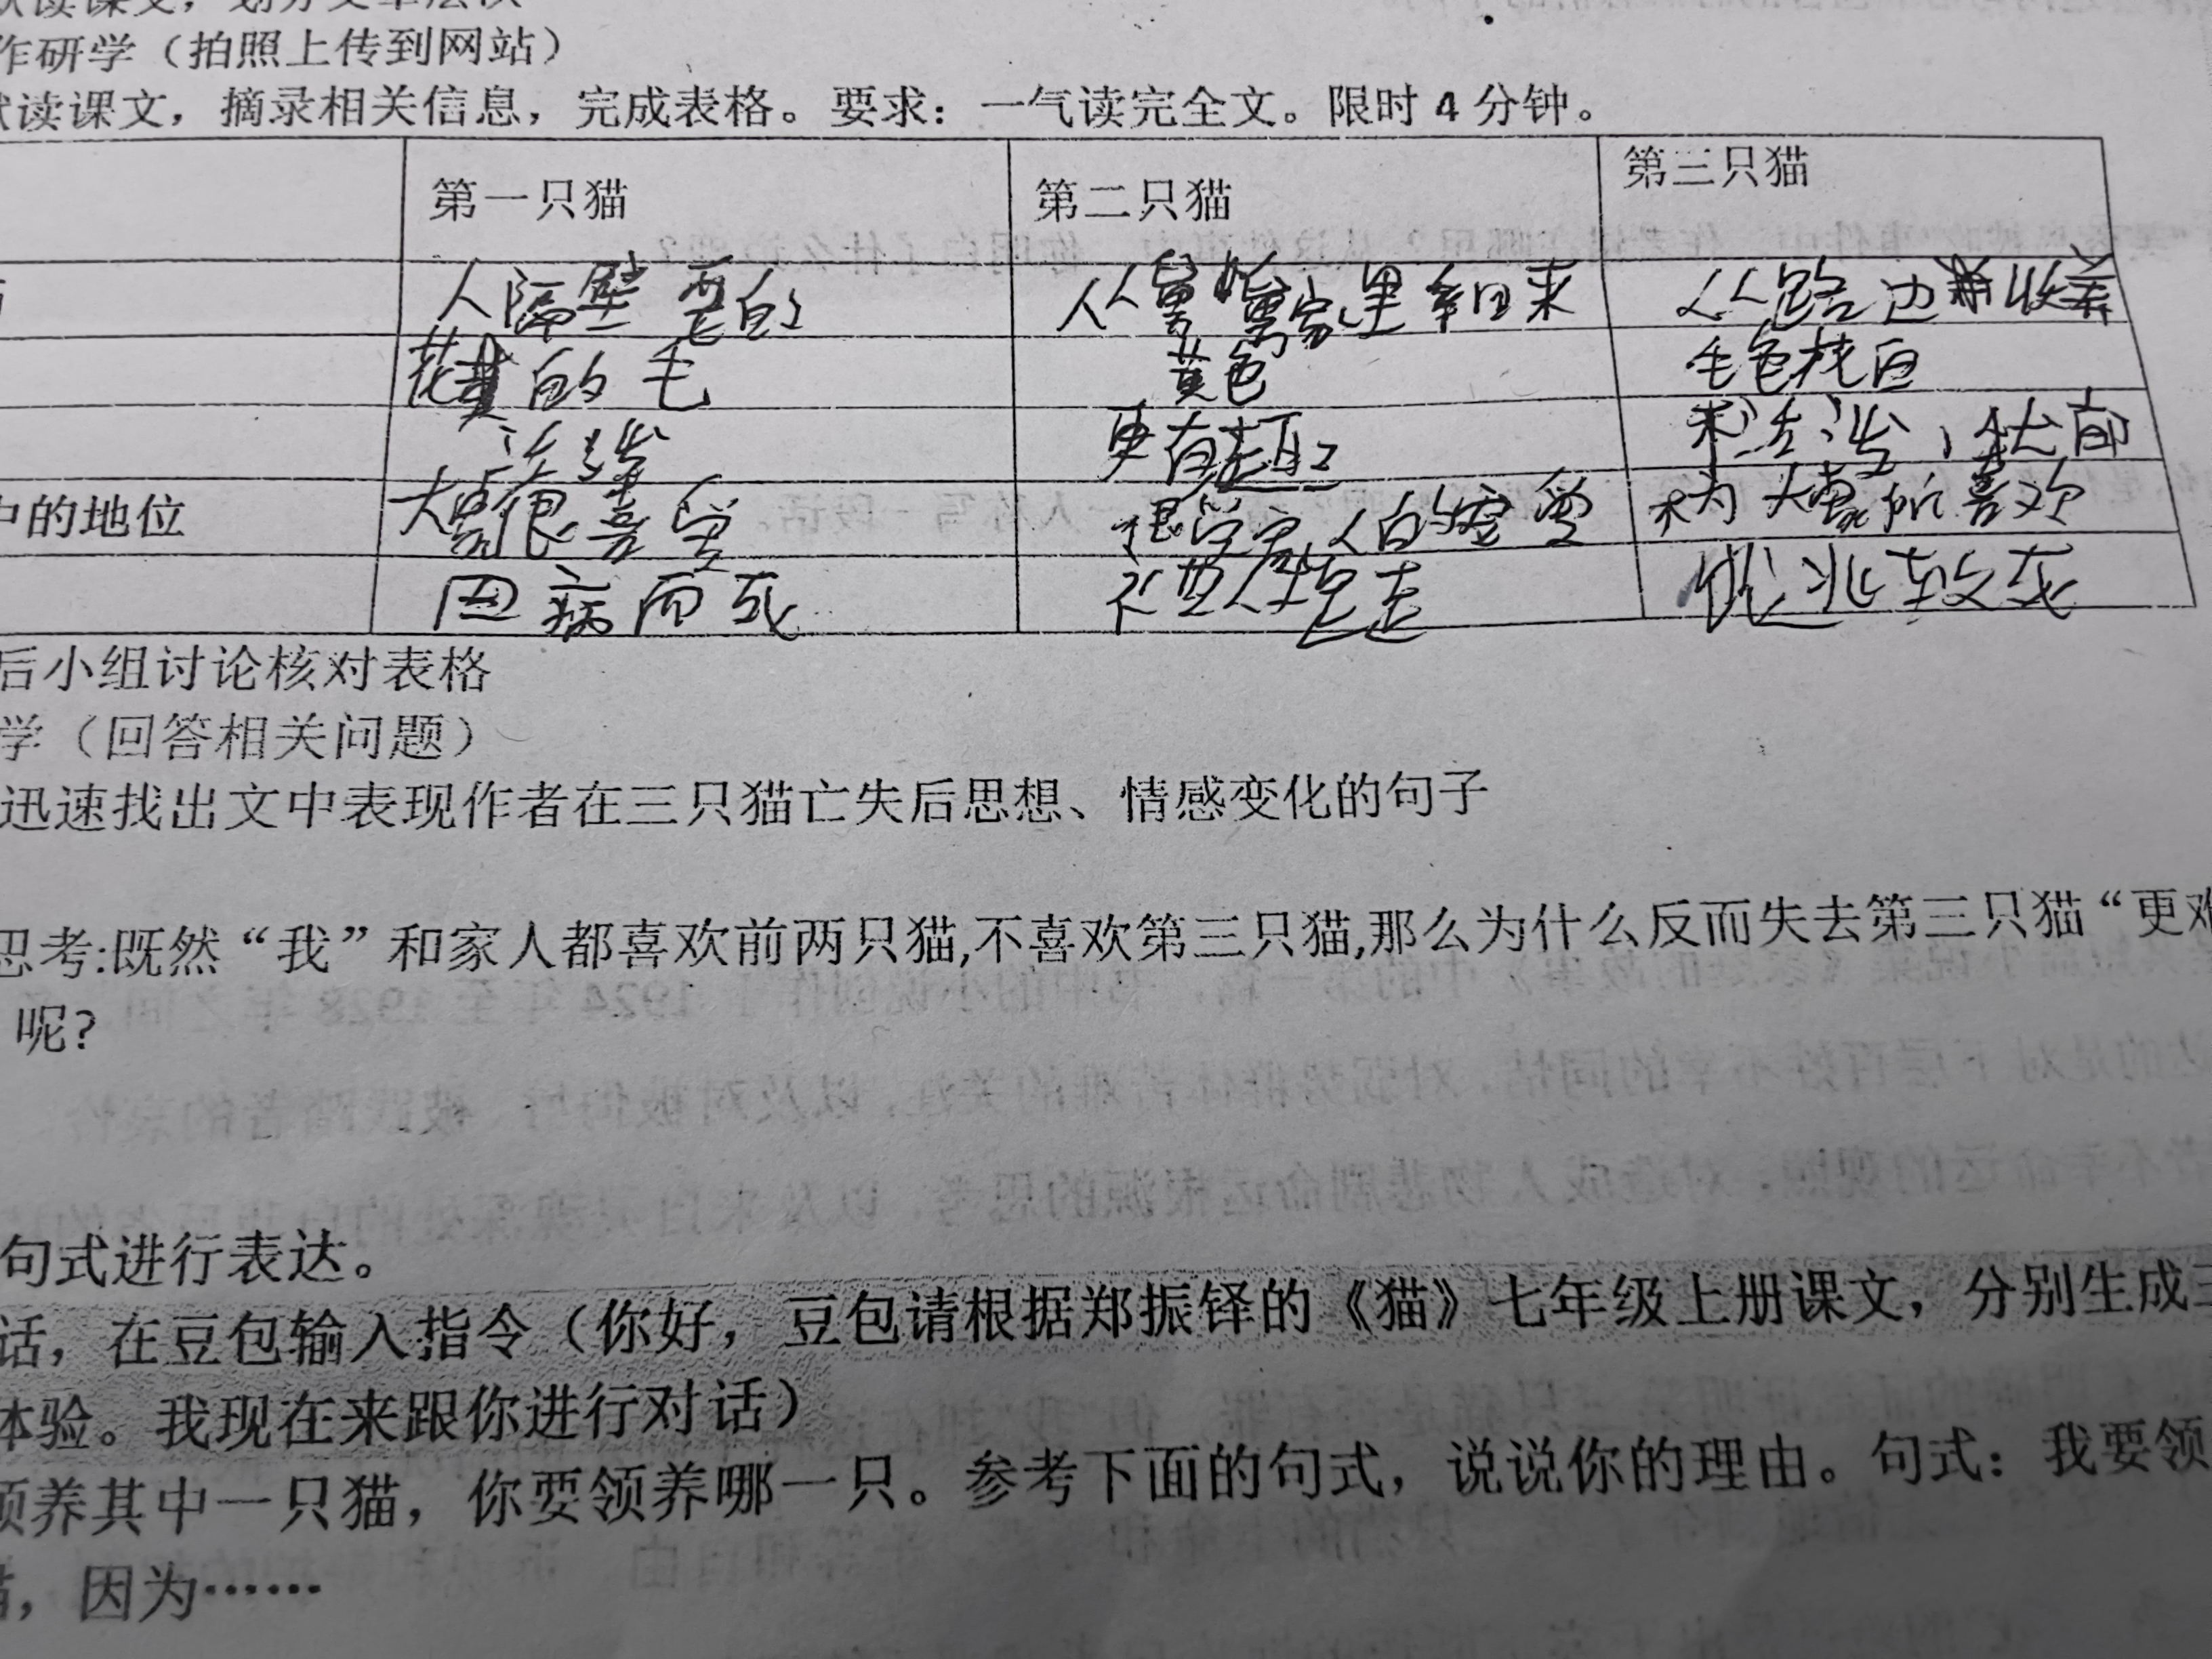 作研学（拍照上传到网站）
读课文，摘录相关信息，完成表格。要求：一气读完全文。限时4分钟。
第一只猫 第二只猫 第三只猫
人隔壁要的 从舅舅家里 来 从路边 收养
花 的毛 黄色 毛色花白
活泼 更有趣 不活泼，忧郁
中的地位 大家很喜爱 家人的宠爱 不为大家所喜欢
因病而死 被人 走 逃 死
后小组讨论核对表格
学（回答相关问题）
迅速找出文中表现作者在三只猫亡失后思想、情感变化的句子
思考:既然“我”和家人都喜欢前两只猫,不喜欢第三只猫,那么为什么反而失去第三只猫“更难
呢？
句式进行表达。
话，在豆包输入指令（你好，豆包请根据郑振铎的《猫》七年级上册课文，分别生成三
体验。我现在来跟你进行对话）
领养其中一只猫，你要领养哪一只。参考下面的句式，说说你的理由。句式：我要领
猫，因为……